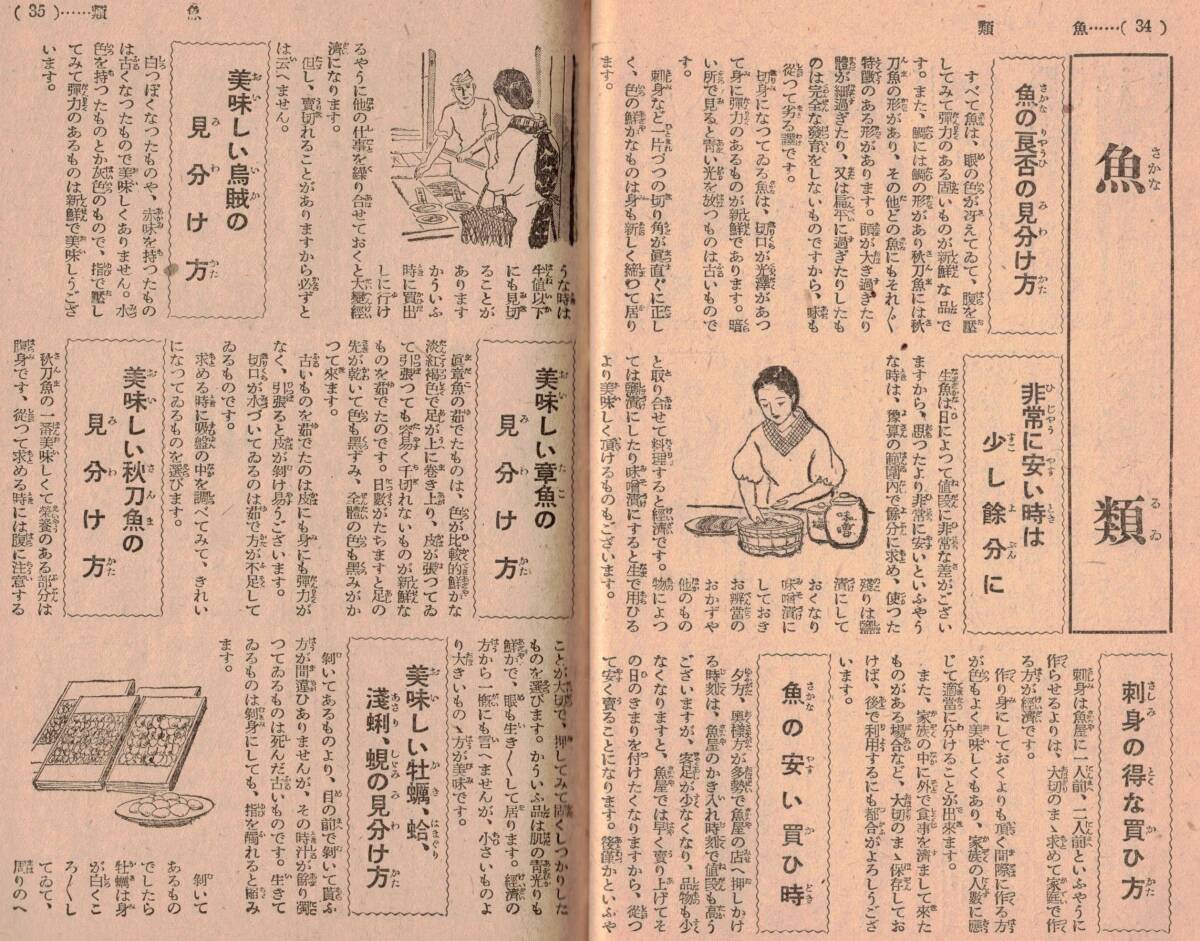 魚……( 34 )
類
魚類
さかなるゐ
魚の良否の見分け方
すべて魚は、眼の色が冴えてゐて、腹を壓
してみて彈力のある固いものが新鮮な品で
す。また、鯛には鯛の形があり秋刀魚には秋
刀魚の形があり、その他どの魚にもそれ〴〵
特徴のある形があります。頭が大き過ぎたり
體が細過ぎたり、又は扁平に過ぎたりしたも
のは完全な發育をしないものですから、味も
從つて劣る譯です。
切身になつてゐる魚は、切口が光澤があつ
て身に彈力のあるものが新鮮であります。暗
い所で見ると青い光を放つものは古いもので
す。
刺身など一片づつの切り角が眞直ぐに正し
く、色の鮮かなものは身も新しく締つて居り
ます。
非常に安い時は
少し餘分に
生魚は日によつて値段に非常な差がござい
ますから、思つたより非常に安いといふやう
な時は、豫算の範圍内で餘分に求め、使つた
殘りは鹽
漬にして
おくなり
味噌漬に
しておき
お辨當の
おかずや
他のもの
と取り合せて料理すると經濟です。物によつ
ては鹽漬にしたり味噌漬にすると生で用ひる
より美味しく頂けるものもございます。
味噌
刺身の得な買ひ方
刺身は魚屋に一人前、二人前といふやうに
作らせるよりは、大切のまゝ求めて家庭で作
る方が經濟です。
作り身にしておくよりも頂く間際に作る方
が色もよく美味しくもあり、家族の人數に應
じて適當に分けることが出來ます。
また、家族の中に外で食事を濟まして來た
ものがある場合など、大切のまゝ保存してお
けば、後で利用するにも都合がよろしうござ
います。
魚の安い買ひ時
夕方、奥樣方が多勢で魚屋の店へ押しかけ
る時刻は、魚屋のかき入れ時刻で値段も高う
ございますが、客足が少なくなり、品物も少
なくなりますと、魚屋では早く賣り上げてそ
の日のきまりを付けたくなりますから、從つ
て安く賣ることになります。後僅かといふや
( 35 )……類
魚
うな時は
半値以下
にも見切
ることが
あります
かういふ
時に買出
しに行け
るやうに他の仕事を繰り合せておくと大變經
濟になります。
但し、賣切れることがありますから必ずと
は云へません。
美味しい烏賊の
見分け方
白つぽくなつたものや、赤味を持つたもの
は古くなつたもので美味しくありません。水
色を持つたものとか灰色のもので、指で壓し
てみて彈力のあるものは新鮮で美味しうござ
います。
美味しい章魚の
見分け方
眞章魚の茹でたものは、色が比較的鮮かな
淡紅褐色で足が上に卷き上り、皮が張つてゐ
て引張つても容易く千切れないものが新鮮な
ものを茹でたのです。日數がたちますと足の
先が乾いて色も黑ずみ、全體の色も黑みがか
つて來ます。
古いものを茹でたのは皮にも身にも彈力が
なく、引張ると皮が剝け易うございます。
切口が水づいてゐるのは茹で方が不足して
ゐるものです。
求める時に吸盤の中を調べてみて、きれい
になつてゐるものを選びます。
美味しい秋刀魚の
見分け方
秋刀魚の一番美味しくて榮養のある部分は
腹身です、從つて求める時には腹に注意する
ことが大切で、押してみて固くしつかりした
ものを選びます。かういふ品は肌の青光りも
鮮かで、眼も生き〳〵して居ります。經濟の
方から一概にも言へませんが、小さいものよ
り大きいものゝ方が美味です。
美味しい牡蠣、蛤、
淺蜊、蜆の見分け方
剝いてあるものより、目の前で剝いて貰ふ
方が間違ひありませんが、その時汁が餘り濁
つてゐるものは死んだ古いものです。生きて
ゐるものは剝身にしても、指を觸れると縮み
ます。
剝いて
あるもの
でしたら
牡蠣は身
が白くこ
ろ〳〵し
てゐて、
周りのへ